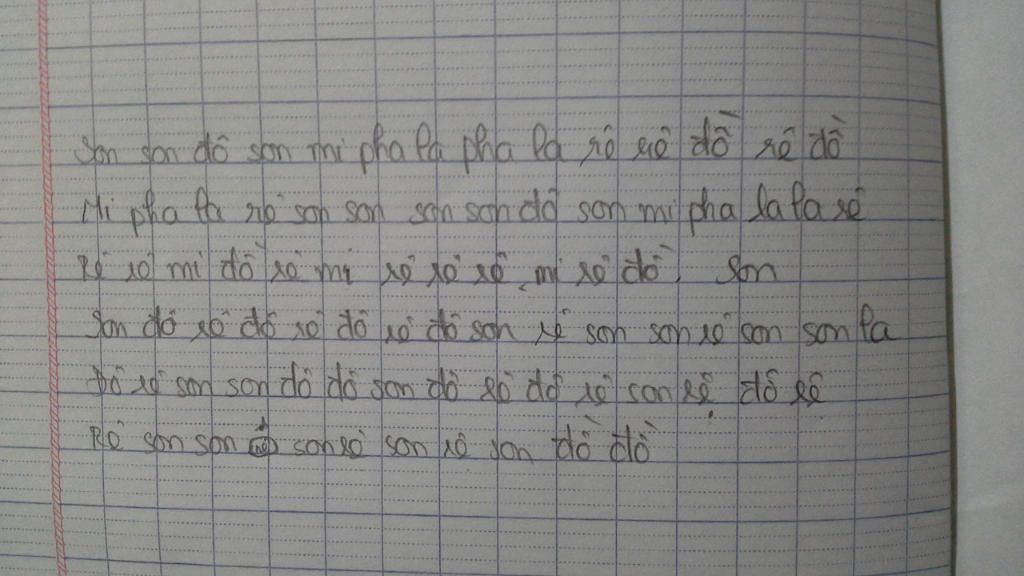 Son son đô son mi pha la pha la rê rê đồ rê đồ
Mi pha la rê son son son son đô son mi pha la la rê
Rê rê mi đồ rê mi rê rê rê mi rê đồ. Son
Son đô rê đô rê đô rê đô son rê son son rê son son la
Đô rê son son đô đô son đô rê đô rê son rê đô rê
Rê son son son rê son rê son đồ đồ